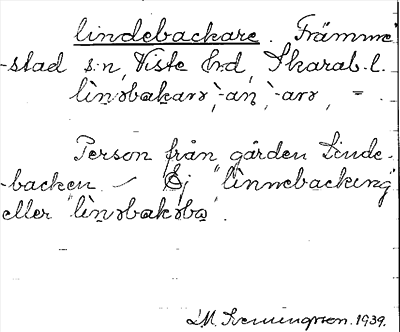 lindebackare. Främme
-stad s:n, Viste h:d, Skarab. l.
lìnɔbakarɔ, -an, -arɔ, = .
Person från gården Linde-
backen. — Ej "linnebacking"
eller "lìnɔbakɔbɔ".
L. M. Svenungsson. 1939.